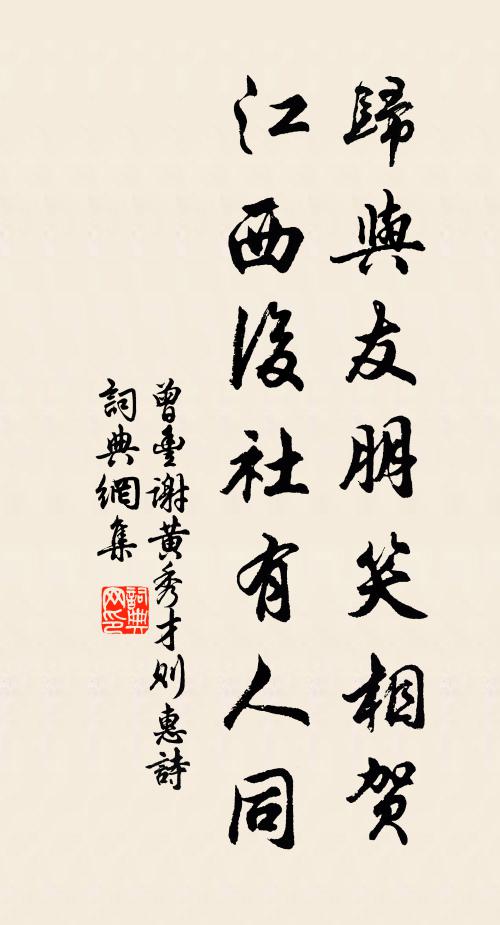 歸與友朋笑相賀
江西後社有人同
曾豐謝黃秀才则惠詩
詞典網集
詞典网印